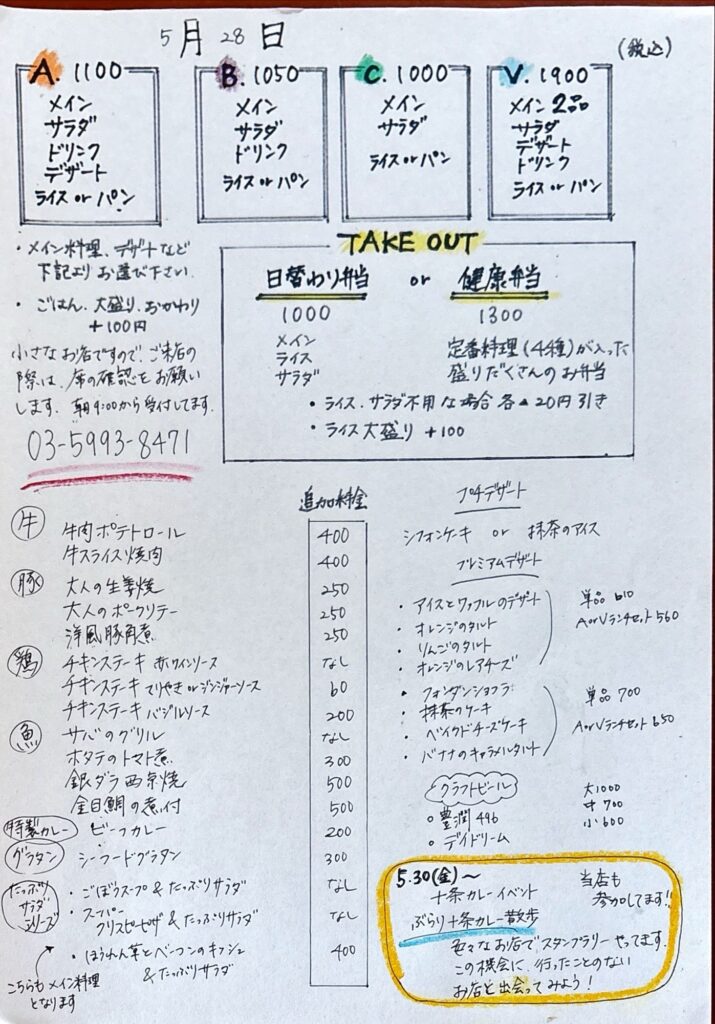 5月28日
(税込)
A. 1100
メイン
サラダ
ドリンク
デザート
ライス or パン
B. 1050
メイン
サラダ
ドリンク
ライス or パン
C. 1000
メイン
サラダ
ライス or パン
V. 1900
メイン 2品
サラダ
デザート
ドリンク
ライス or パン
・メイン料理、デザートなど
下記よりお選び下さい
・ごはん、大盛り、おかわり
+100円
小さなお店ですので、ご来店の
際は、席の確認をお願い
します。朝9:00から受付してます。
03-5993-8471
TAKE OUT
日替わり弁当 or 健康弁当
1000
メイン
ライス
サラダ
1300
定番料理(4種)が入った
盛りだくさんのお弁当
・ライス、サラダ不用な場合 各▲20円引き
・ライス大盛り +100
追加料金
牛
牛肉ポテトロール 400
牛スライス焼肉 400
豚
大人の生姜焼 250
大人のポークソテー 250
洋風豚角煮 250
鶏
チキンステーキ 赤ワインソース なし
チキンステーキ てりやき or ジンジャーソース 60
チキンステーキ バジルソース 200
魚
サバのグリル なし
ホタテのトマト煮 300
銀ダラ西京焼 500
金目鯛の煮付 500
特製カレー ビーフカレー 200
グラタン シーフードグラタン 300
たっぷりサラダシリーズ
・ごぼうスープ&たっぷりサラダ なし
・スーパー
クリスピーピザ&たっぷりサラダ なし
・ほうれん草とベーコンのキッシュ 400
&たっぷりサラダ
こちらもメイン料理
となります
プチデザート
シフォンケーキ or 抹茶のアイス
プレミアムデザート
・アイスとワッフルのデザート
・オレンジのタルト
・りんごのタルト
・オレンジのレアチーズ
単品 610
A or Vランチセット 560
・フォンダンショコラ
・抹茶のケーキ
・ベイクドチーズケーキ
・バナナのキャラメルタルト
単品 700
A or Vランチセット 650
クラフトビール
○豊潤 496
○デイドリーム
大1000
中700
小600
5.30(金)~
十条カレーイベント
ぶらり十条カレー散歩
当店も
参加してます!!
色々なお店でスタンプラリーやってます。
この機会に、行ったことのない
お店と出会ってみよう!